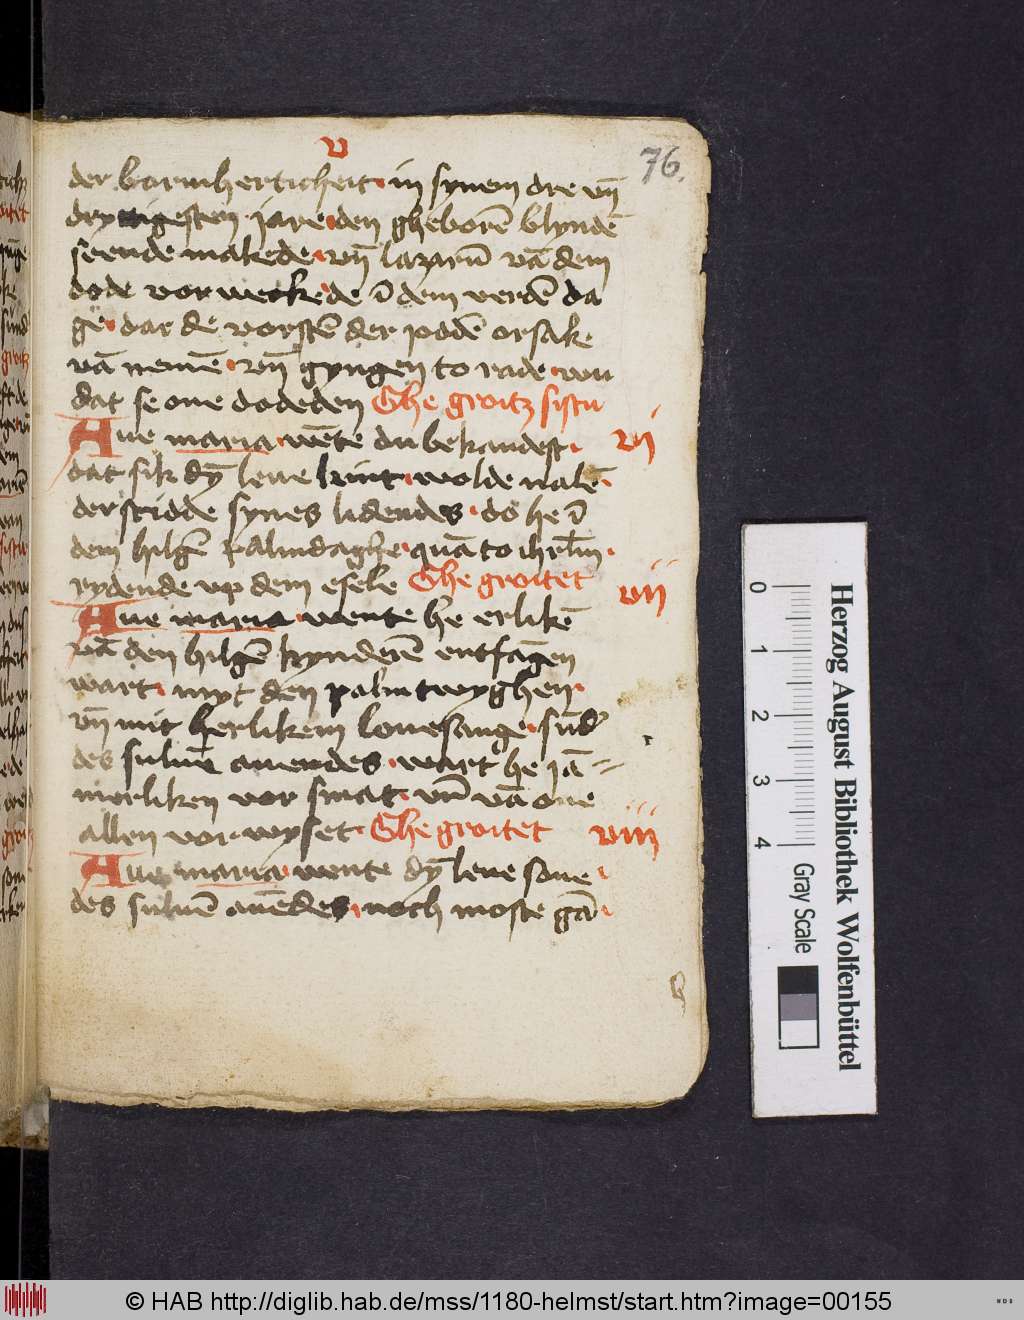 v
76.
der barmherticheit · in synem dre vn̄
dryttigesten jare · den gheborē blyndē
seende makede · vn̄ lazarū vā dem
dode vorweckede ī dem verdē da
ge · dar de vorstē der jodē orsake
vā nemē · vn̄ gyngen to rade · wu
dat se one dodeden Ghe groitz sistu
Aue maria · wēte du bekandest · vi
dat sik dȳ leue kint · wolde nalē ·
der stidde synes lidendes · do he ī
dem hilgē palmdaghe · quā to ihrl̄m ·
rydende vp dem esele Ghe groitet vii
Aue maria · wente he erlikē
vā den hilgē kynderē entfāgen
wart · myt den palm twyghen ·
vn̄ mit herlikem louesange · sūd'
des suluē auendes · wart he jā=
merliken vor smat · vn̄ vā one
allen vorwyset · Ghe groitet viii
Aue maria · wente dȳ leue sone ·
des suluē auēdes · noch moste gā ·
Herzog August Bibliothek Wolfenbüttel
0 1 2 3 4 Gray Scale
© HAB http://diglib.hab.de/mss/1180-helmst/start.htm?image=00155